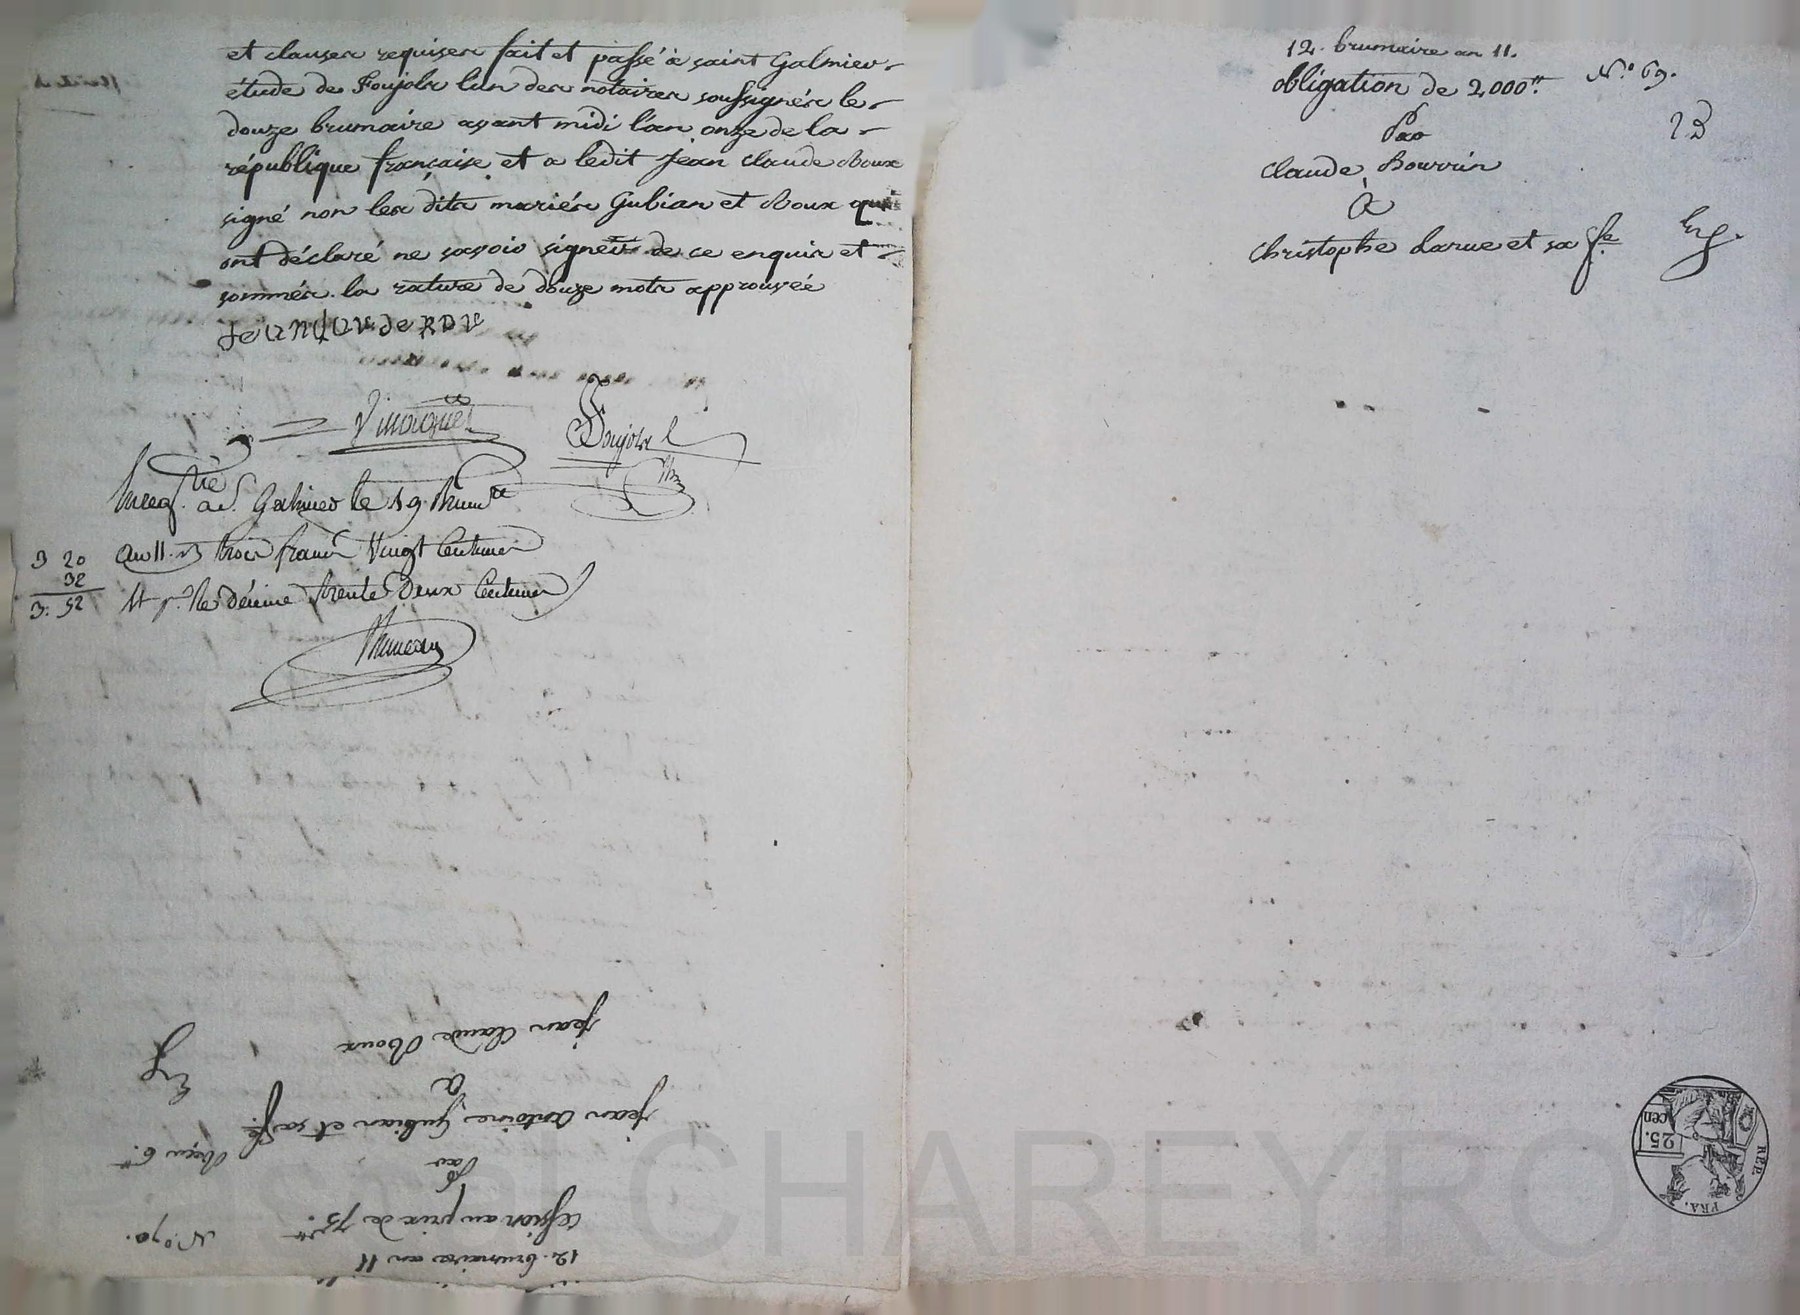 et clauses requises fait et passé à saint Galmier
étude de Foujols l'un des notaires soussignés le
douze brumaire avant midi l'an onze de la
république française et a ledit jean claude Roux
signé non les dits mariés Gubian et Roux qui
ont déclaré ne savoir signer de ce enquis et
sommés. la rature de douze mots approuvée
Foujols
à St. Galmier le 19 Brum.re
3 20 an 11. trois francs Vingt Centimes
32
3. 52 décime trente Deux Centimes
Bruneau
12. brumaire an 11.
obligation de 2,000tt N.° 69.
Par
claude Bourrin
à
christophe Larue et sa fe. Erg.
12. brumaire an 11
cession au prix de 75tt N.° 70.
Par
jean antoine Gubian et sa fe. Reçu 6tt
à Erg
jean claude Roux
25.
cen
REP.
FRA.
CHAREYRON